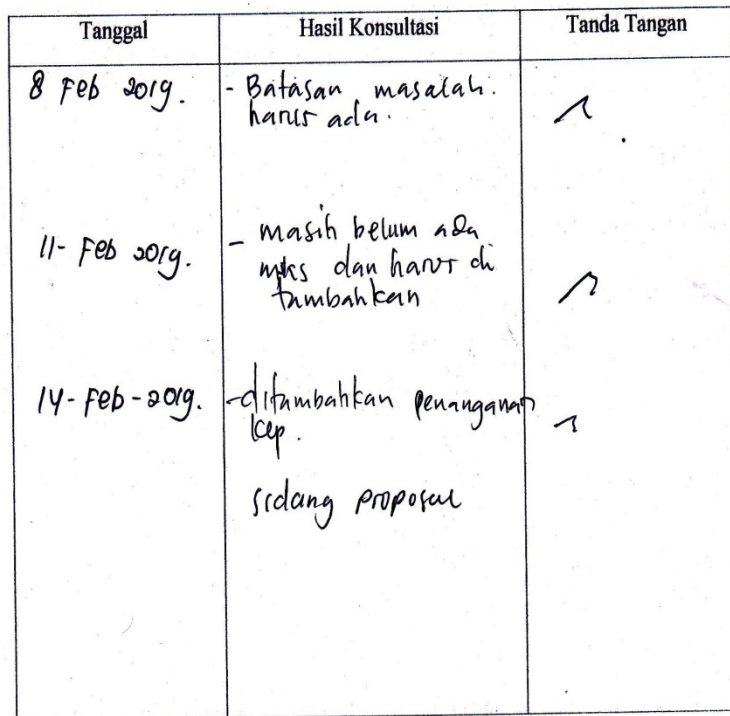 Tanggal Hasil Konsultasi Tanda Tangan
8 Feb 2019. - Batasan masalah.
harus ada.
11- Feb 2019. - masih belum ada
dan harus di
tambahkan
14-Feb-2019. -ditambahkan penanganan
kep.
sidang proposal